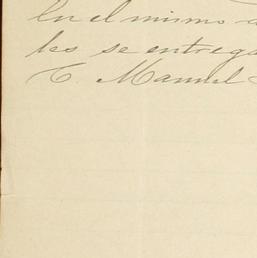 En el mismo
les se entrega
C. Manuel